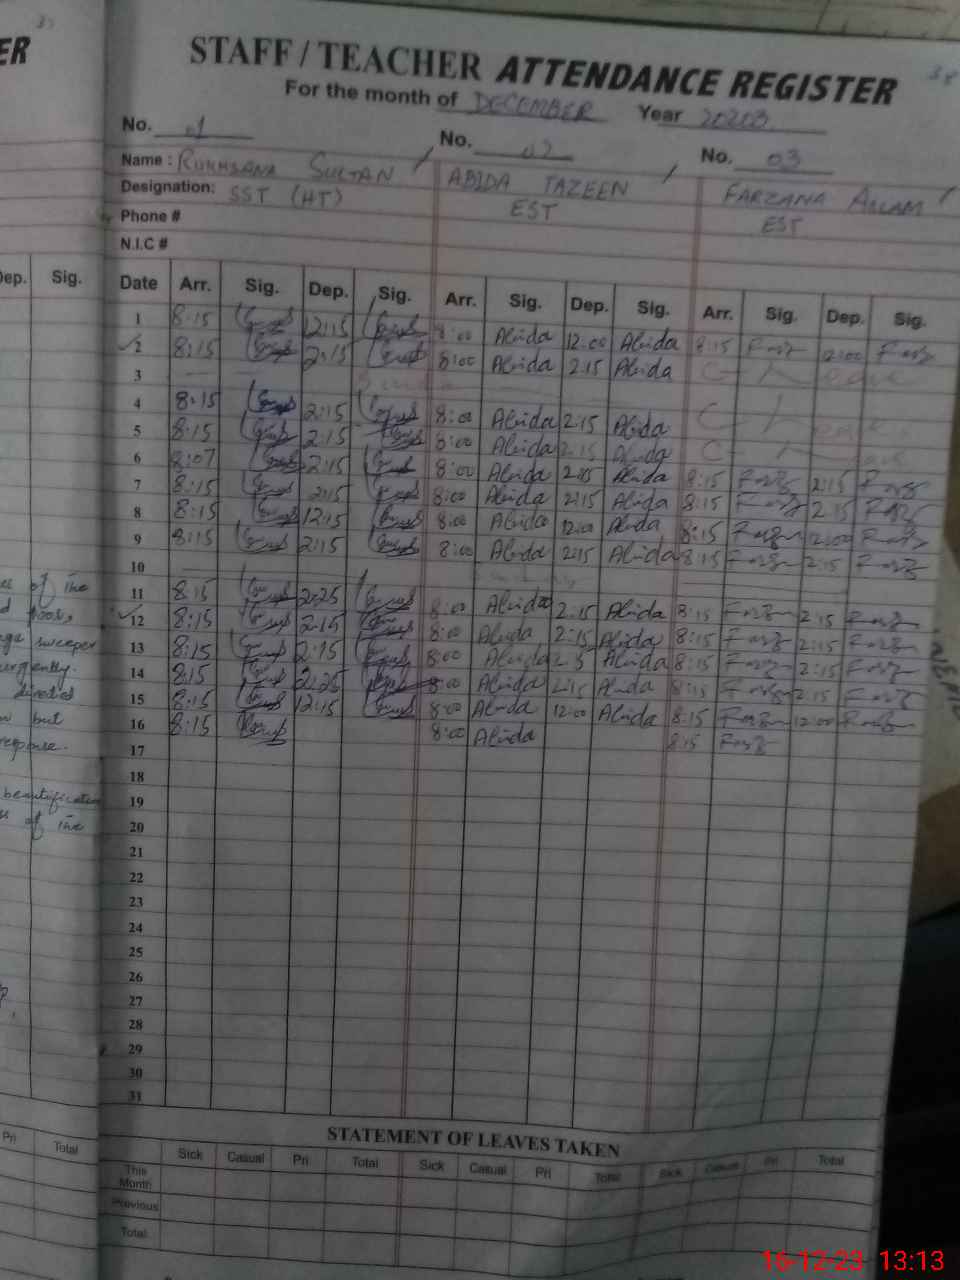 ER
STAFF / TEACHER ATTENDANCE REGISTER
38
For the month of DECEMBER Year 20203
No. 01 No. 02 No. 03
Name : RUKHSANA SULTAN ABIDA TAZEEN FARZANA ASLAM
Designation: SST (HT) EST EST
Phone #
N.I.C #
Dep. Sig.
Date Arr. Sig. Dep. Sig. Arr. Sig. Dep. Sig. Arr. Sig. Dep. Sig.
1 8:15 12:15 8:00 Abida 12:00 Abida 8:15 Farz 12:00 Farz
2 8:15 2:15 8:00 Abida 2:15 Abida C Leave
3 Sunday
4 8:15 2:15 8:00 Abida 2:15 Abida C Leave
5 8:15 2:15 8:00 Abida 2:15 Abida C Leave
6 8:07 2:15 8:00 Abida 2:15 Abida 8:15 Farz 2:15 Farz
7 8:15 2:15 8:00 Abida 2:15 Abida 8:15 Farz 2:15 Farz
8 8:15 12:15 8:00 Abida 12:00 Abida 8:15 Farz 12:00 Farz
9 8:15 2:15 8:00 Abida 2:15 Abida 8:15 Farz 2:15 Farz
10 Sunday
11 8:15 2:25 8:00 Abida 2:15 Abida 8:15 Farz 2:15 Farz
12 8:15 2:15 8:00 Abida 2:15 Abida 8:15 Farz 2:15 Farz
13 8:15 2:15 8:00 Abida 2:15 Abida 8:15 Farz 2:15 Farz
14 8:15 2:25 8:00 Abida 2:15 Abida 8:15 Farz 2:15 Farz
15 8:15 12:15 8:00 Abida 12:00 Abida 8:15 Farz 12:00 Farz
16 8:15 8:00 Abida 8:15 Farz
17
18
19
20
21
22
23
24
25
26
27
28
29
30
31
of the
sweeper
urgently.
directed
but
response.
beautification
of the
STATEMENT OF LEAVES TAKEN
Pri Total
Sick Casual Pri Total Sick Casual Pri Total Sick Casual Pri Total
This Month
Previous
Total
16-12-23 13:13